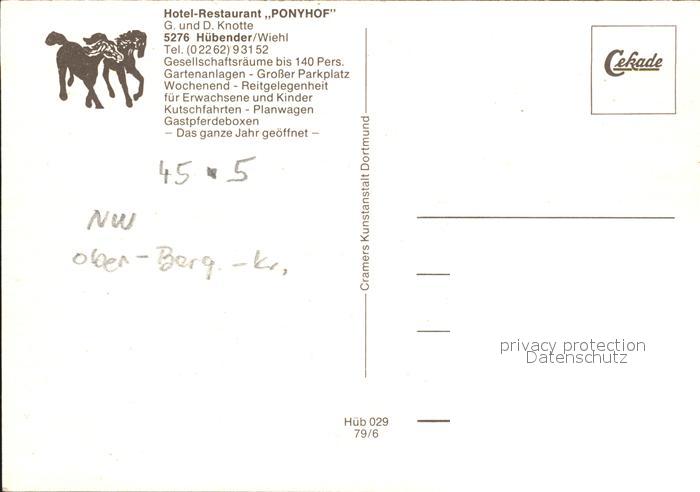 Hotel-Restaurant „PONYHOF"
G. und D. Knotte
5276 Hübender/Wiehl
Tel. (02262) 93152
Gesellschaftsräume bis 140 Pers.
Gartenanlagen - Großer Parkplatz
Wochenend - Reitgelegenheit
für Erwachsene und Kinder
Kutschfahrten - Planwagen
Gastpferdeboxen
– Das ganze Jahr geöffnet –
45 • 5
NW
ober-Berg.-kr.
Cramers Kunstanstalt Dortmund
Hüb 029
79/6
Cekade
privacy protection
Datenschutz